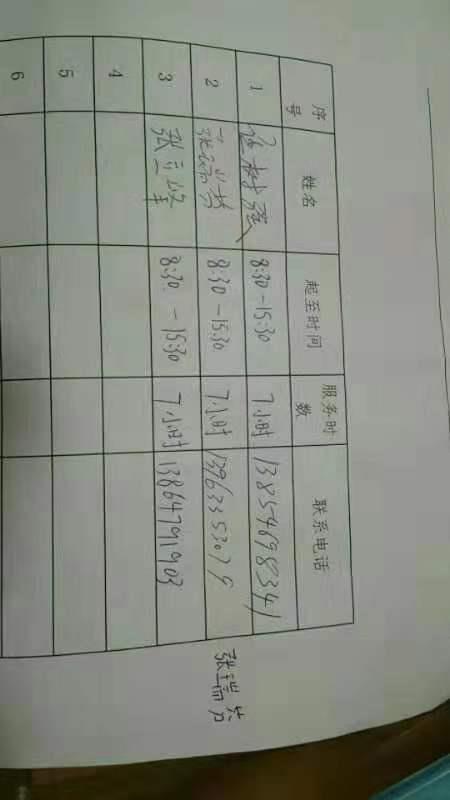 序号 姓名 起至时间 服务时数 联系电话
1 树强 8:30-15:30 7小时 13854698341
2 8:30-15:30 7小时 13963353075
3 张立峰 8:30-15:30 7小时 13864791903
4
5
6
张瑞芳